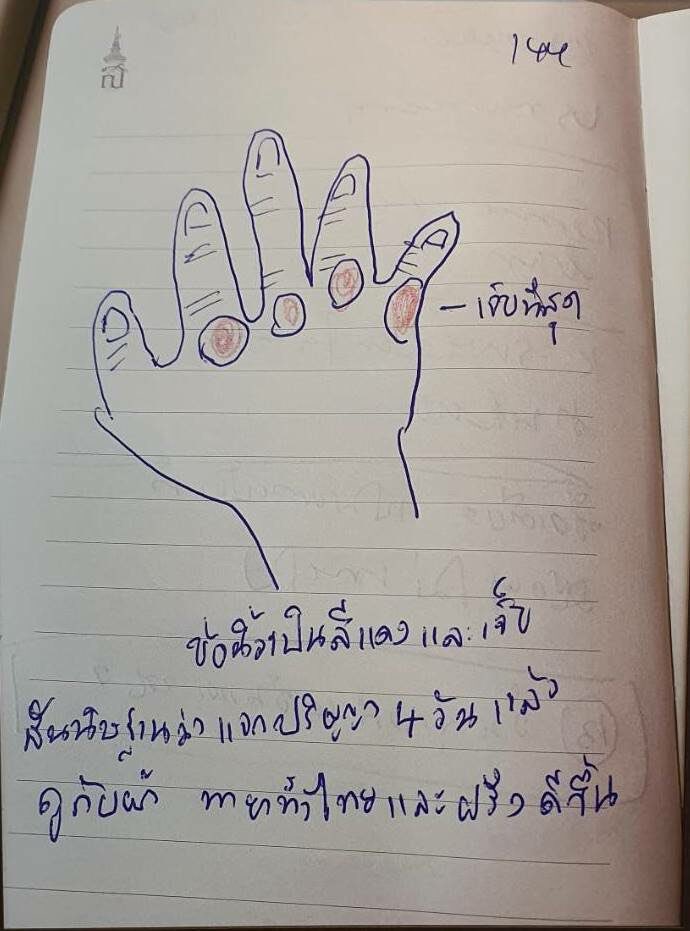 – เจ็บที่สุด
ข้อนิ้วเป็นสีแดงและเจ็บ
สันนิษฐานว่า แจกปริญญา 4 วัน แล้ว
ถูกับผ้า ทายาทั้งไทยและฝรั่ง ดีขึ้น